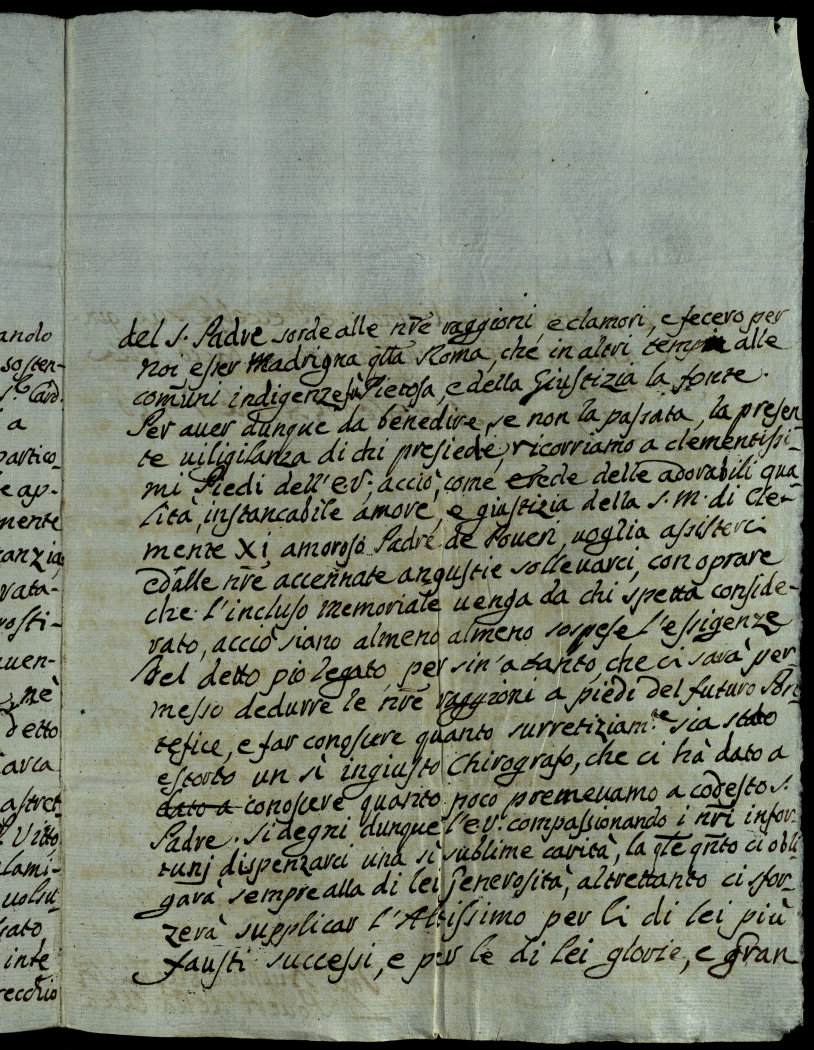 anolo
sosten-
S.r Card.
a
partico-
e ap-
mente
anzia,
vata-
rosti-
uen-
, nè
detto
arca
astret-
Vitto,
lami-
uolsu-
sato
inte
recchio
del S. Padre sorde alle nr̃e raggioni, e clamori, e fecero per
noi esser Madrigna q̃ta Roma, che in altri tempi alle
comuni indigenze fù Pietosa, e della Giustizia la fonte.
Per auer dunque da benedire, se non la passata, la presen-
te uiligilanza di chi presiede, ricorriamo a clementissi-
mi Piedi dell'E.V., acciò, come erede delle adorabili qua-
lità, instancabile amore, e giustizia della S. M. di Cle-
mente XI, amoroso Padre de Poueri, uoglia assisterci
ed'alle nr̃e accennate angustie solleuarci, con oprare
che l'incluso memoriale uenga da chi spetta conside-
rato, acciò siano almeno almeno sospese l'essigenze
del detto pio legato, per sin'a tanto, che ci sarà per-
messo dedurre le nr̃e raggioni a piedi del futuro Pon-
tefice, e far conoscere quanto surretiziam.te sia stato
estorto un sì ingiusto Chirografo, che ci hà dato a
dato a conoscere quanto poco premeuamo a codesto S.
Padre. Si degni dunque l'E.V. compassionando i nr̃i infor-
tunj dispenzarci una sì sublime carità, la q̃le q̃nto ci obli-
garà sempre alla di lei Generosità, altrettanto ci sfor-
zerà supplicar l'Altissimo per li di lei più
fausti successi, e per le di lei glorie, e gran